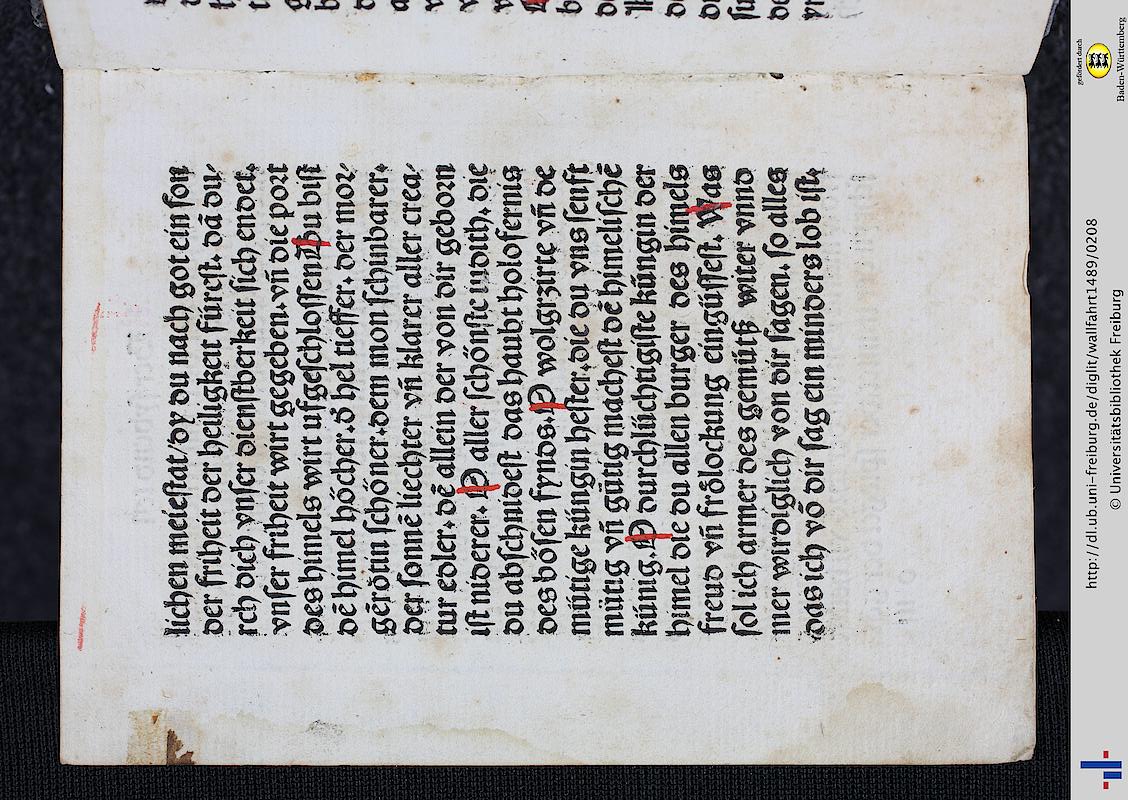 lichen meiestat/dy du nach got ein son
der friheit der heiligkeit fürest. dā du/
rch dich vnser dienstberkeit sich endet.
vnser friheit wirt gegeben. vñ die port
des himels wirt ufgeschlossen Du bist
dē himel höcher. d hel tieffer. der mor/
gērötin schöner. dem mon schinbarer.
der sonnē liechter vñ klarer aller crea/
tur edler. dē allein der von dir geborn
ist niderer. O aller schönste iudith. die
du abschnidest das haubt holofernis
des bösen fynds. O wolgezirte vñ de
mütige küngin hester. die du vns senft
mütig vñ gütig machest dē himelischē
künig. O durchlüchtigiste küngin der
himel die du allen burger des himels
freud vñ frölockung eingüssest. Was
sol ich armer des gemütß witer vnnd
mer wirdiglich von dir sagen. so alles
das ich võ dir sag ein minders lob ist.
http://dl.ub.uni-freiburg.de/diglit/wallfahrt1489/0208
© Universitätsbibliothek Freiburg
gefördert durch
Baden-Württemberg